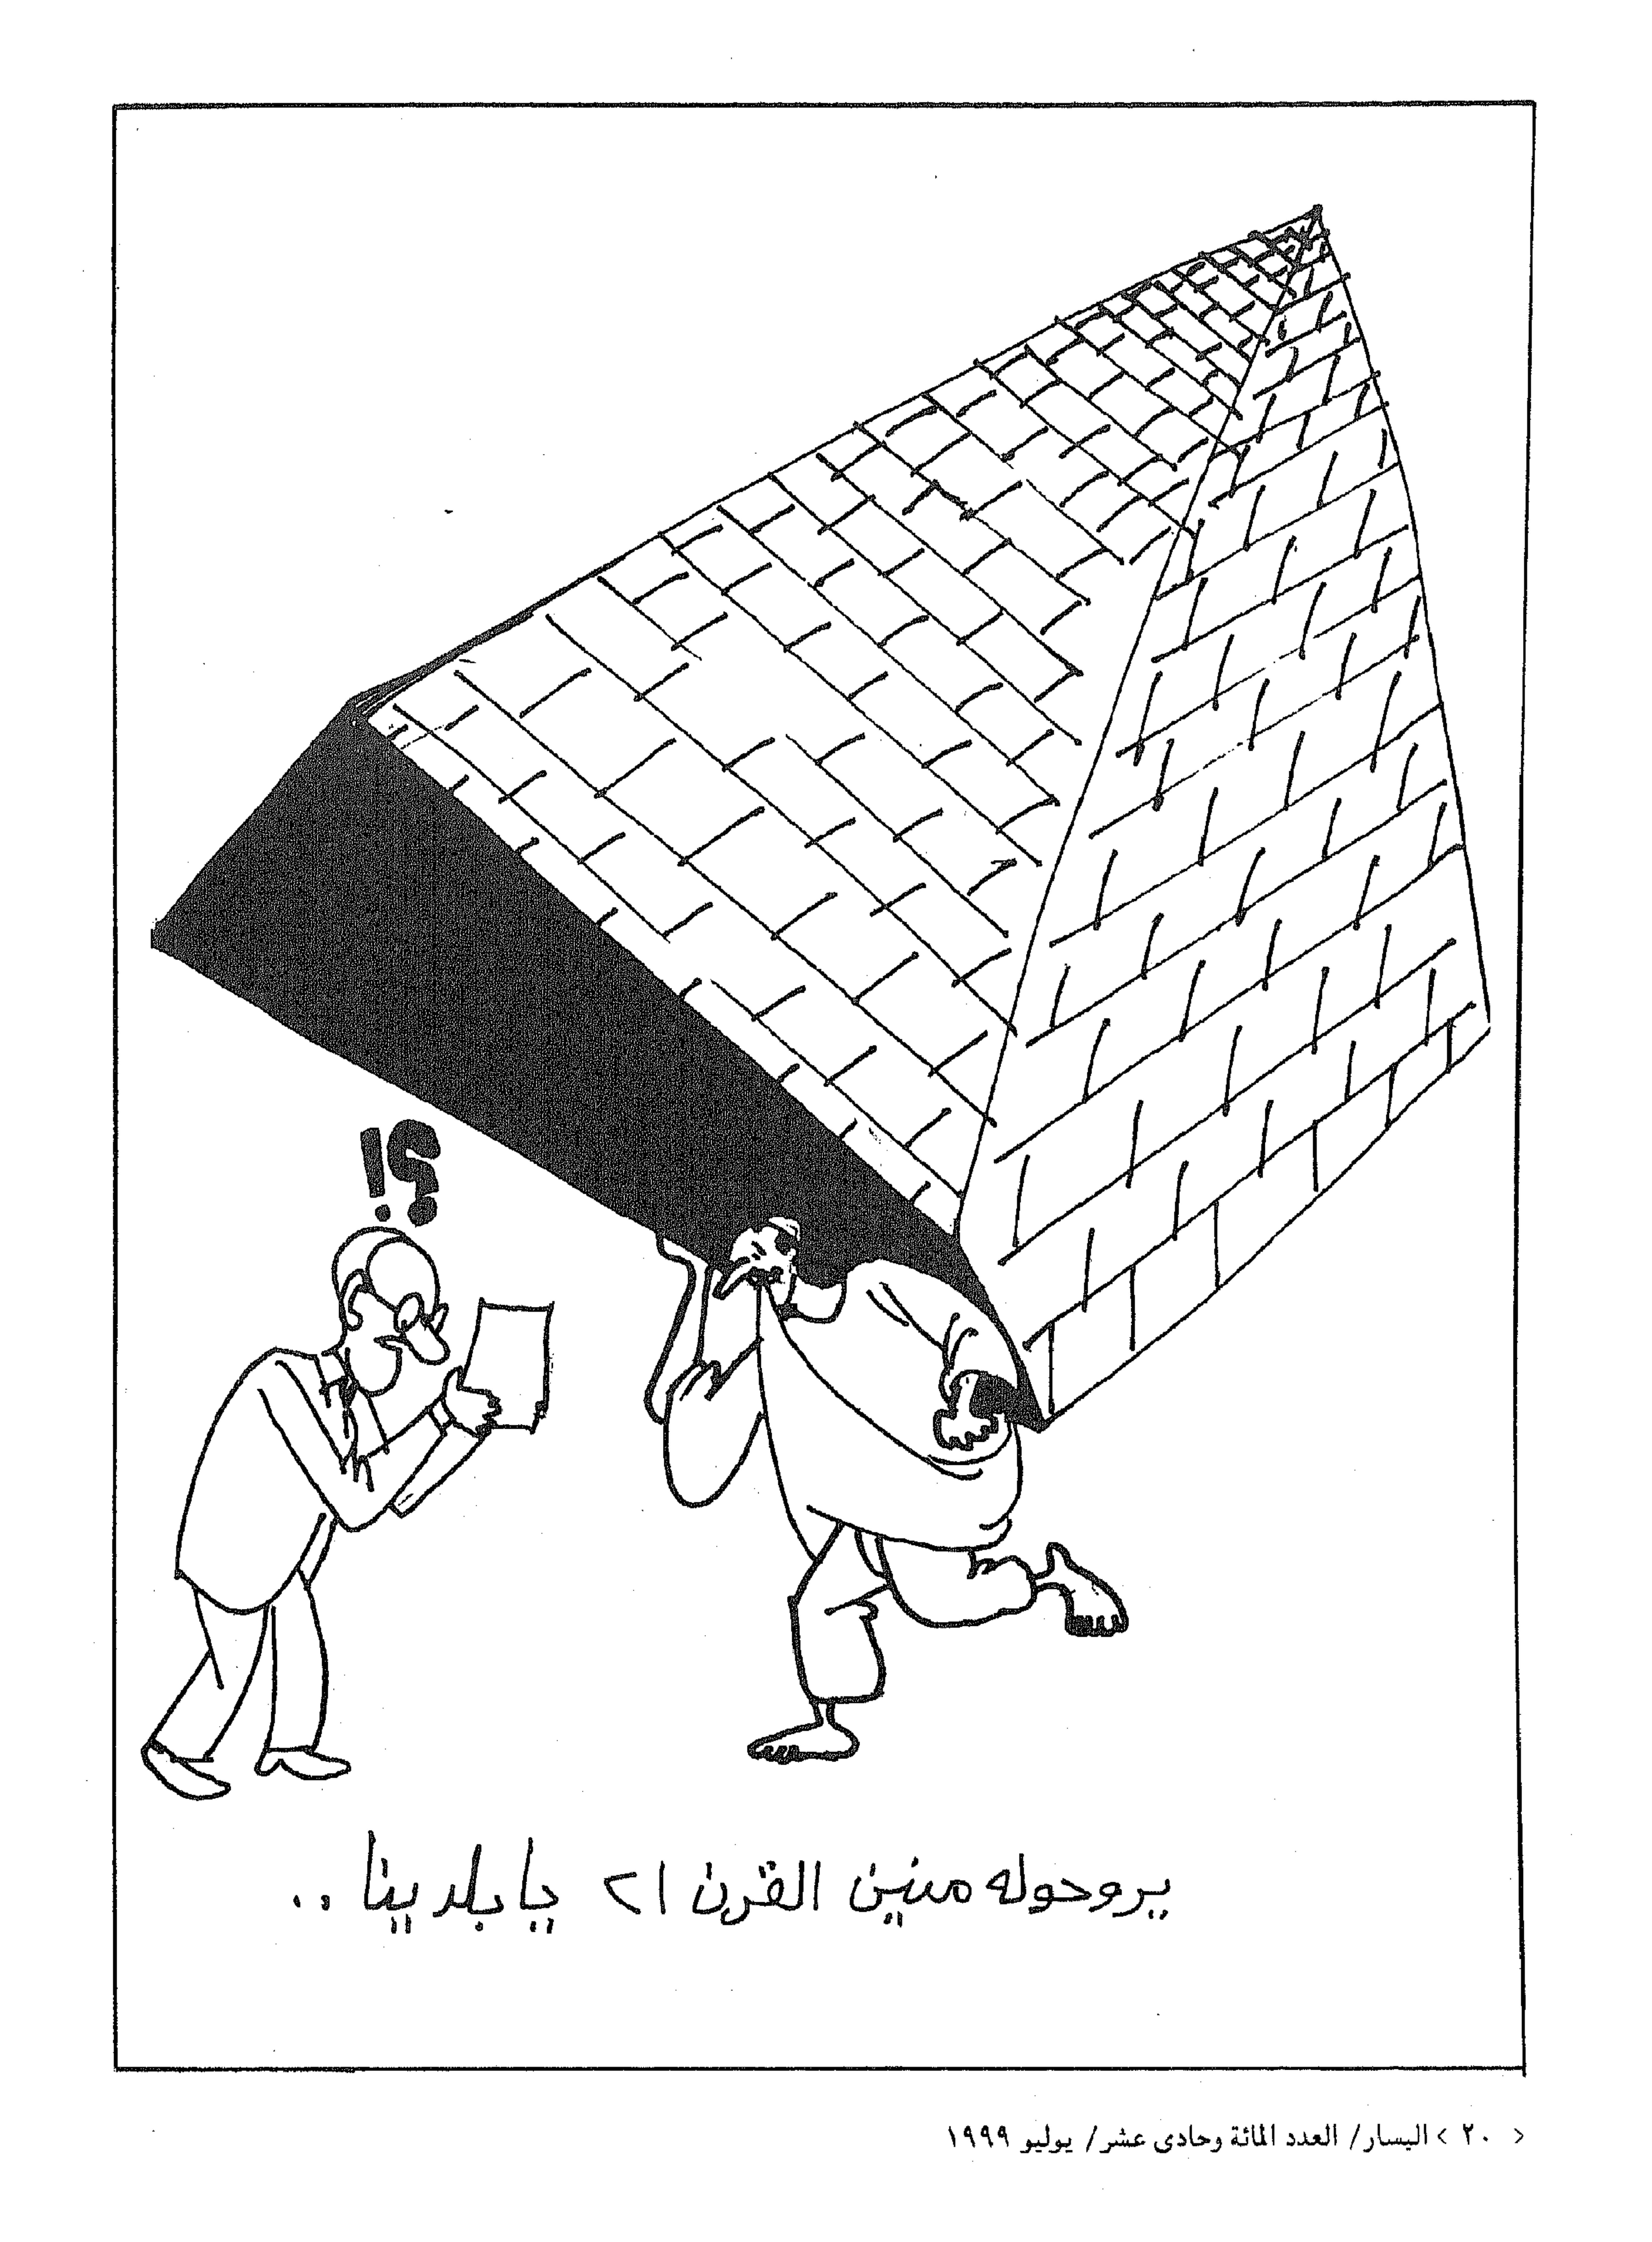 ؟!
يروحوله منين القرن ٢١ يا بلدينا ..
< ٢٠ > اليسار/ العدد المائة وحادى عشر/ يوليو ١٩٩٩